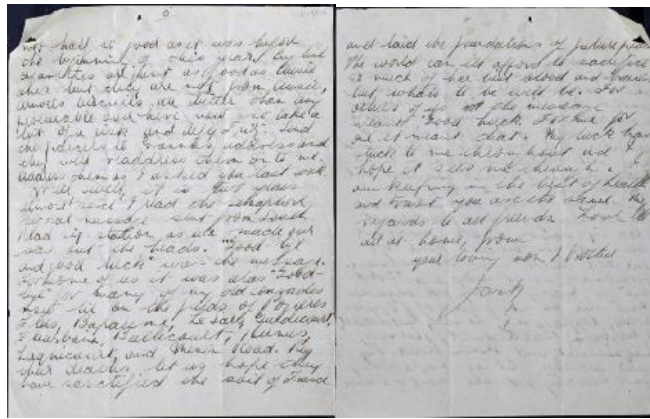 not half so good as it was before
the beginning of this year. English
cigarettes are just as good as those
ones but they are not from
biscuits are better than any
and
lot of a risk and of it. Send
the parcels to address and
they will readdress them on to me.
Address them as I asked you last week.
Well well, it is two years
almost since I read the
message sent from South
Head signal station as we made our
way out the heads. "Good bye
and good luck" was the message.
For some of us it was alas "Good-
bye" for many of my old comrades
now lie on the fields of Pozieres
Flers, Bapaume, Le Sars, Gueudecourt,
Bullecourt,
Lagnicourt, and Menin Road. By
their deaths, let us hope they
have sanctified the soil of France
and laid the foundations of future peace
The world can ill afford to sacrifice
so much of her best blood and brains
but what's to be will be. For
others of us the message
meant Good Luck. For me
it meant that. My luck has
stuck to me throughout and I
hope it sees me through. I
am keeping in the best of health
and trust you are the same. My
regards to all friends. Love to
all at home, from
your loving son & brother
Jack